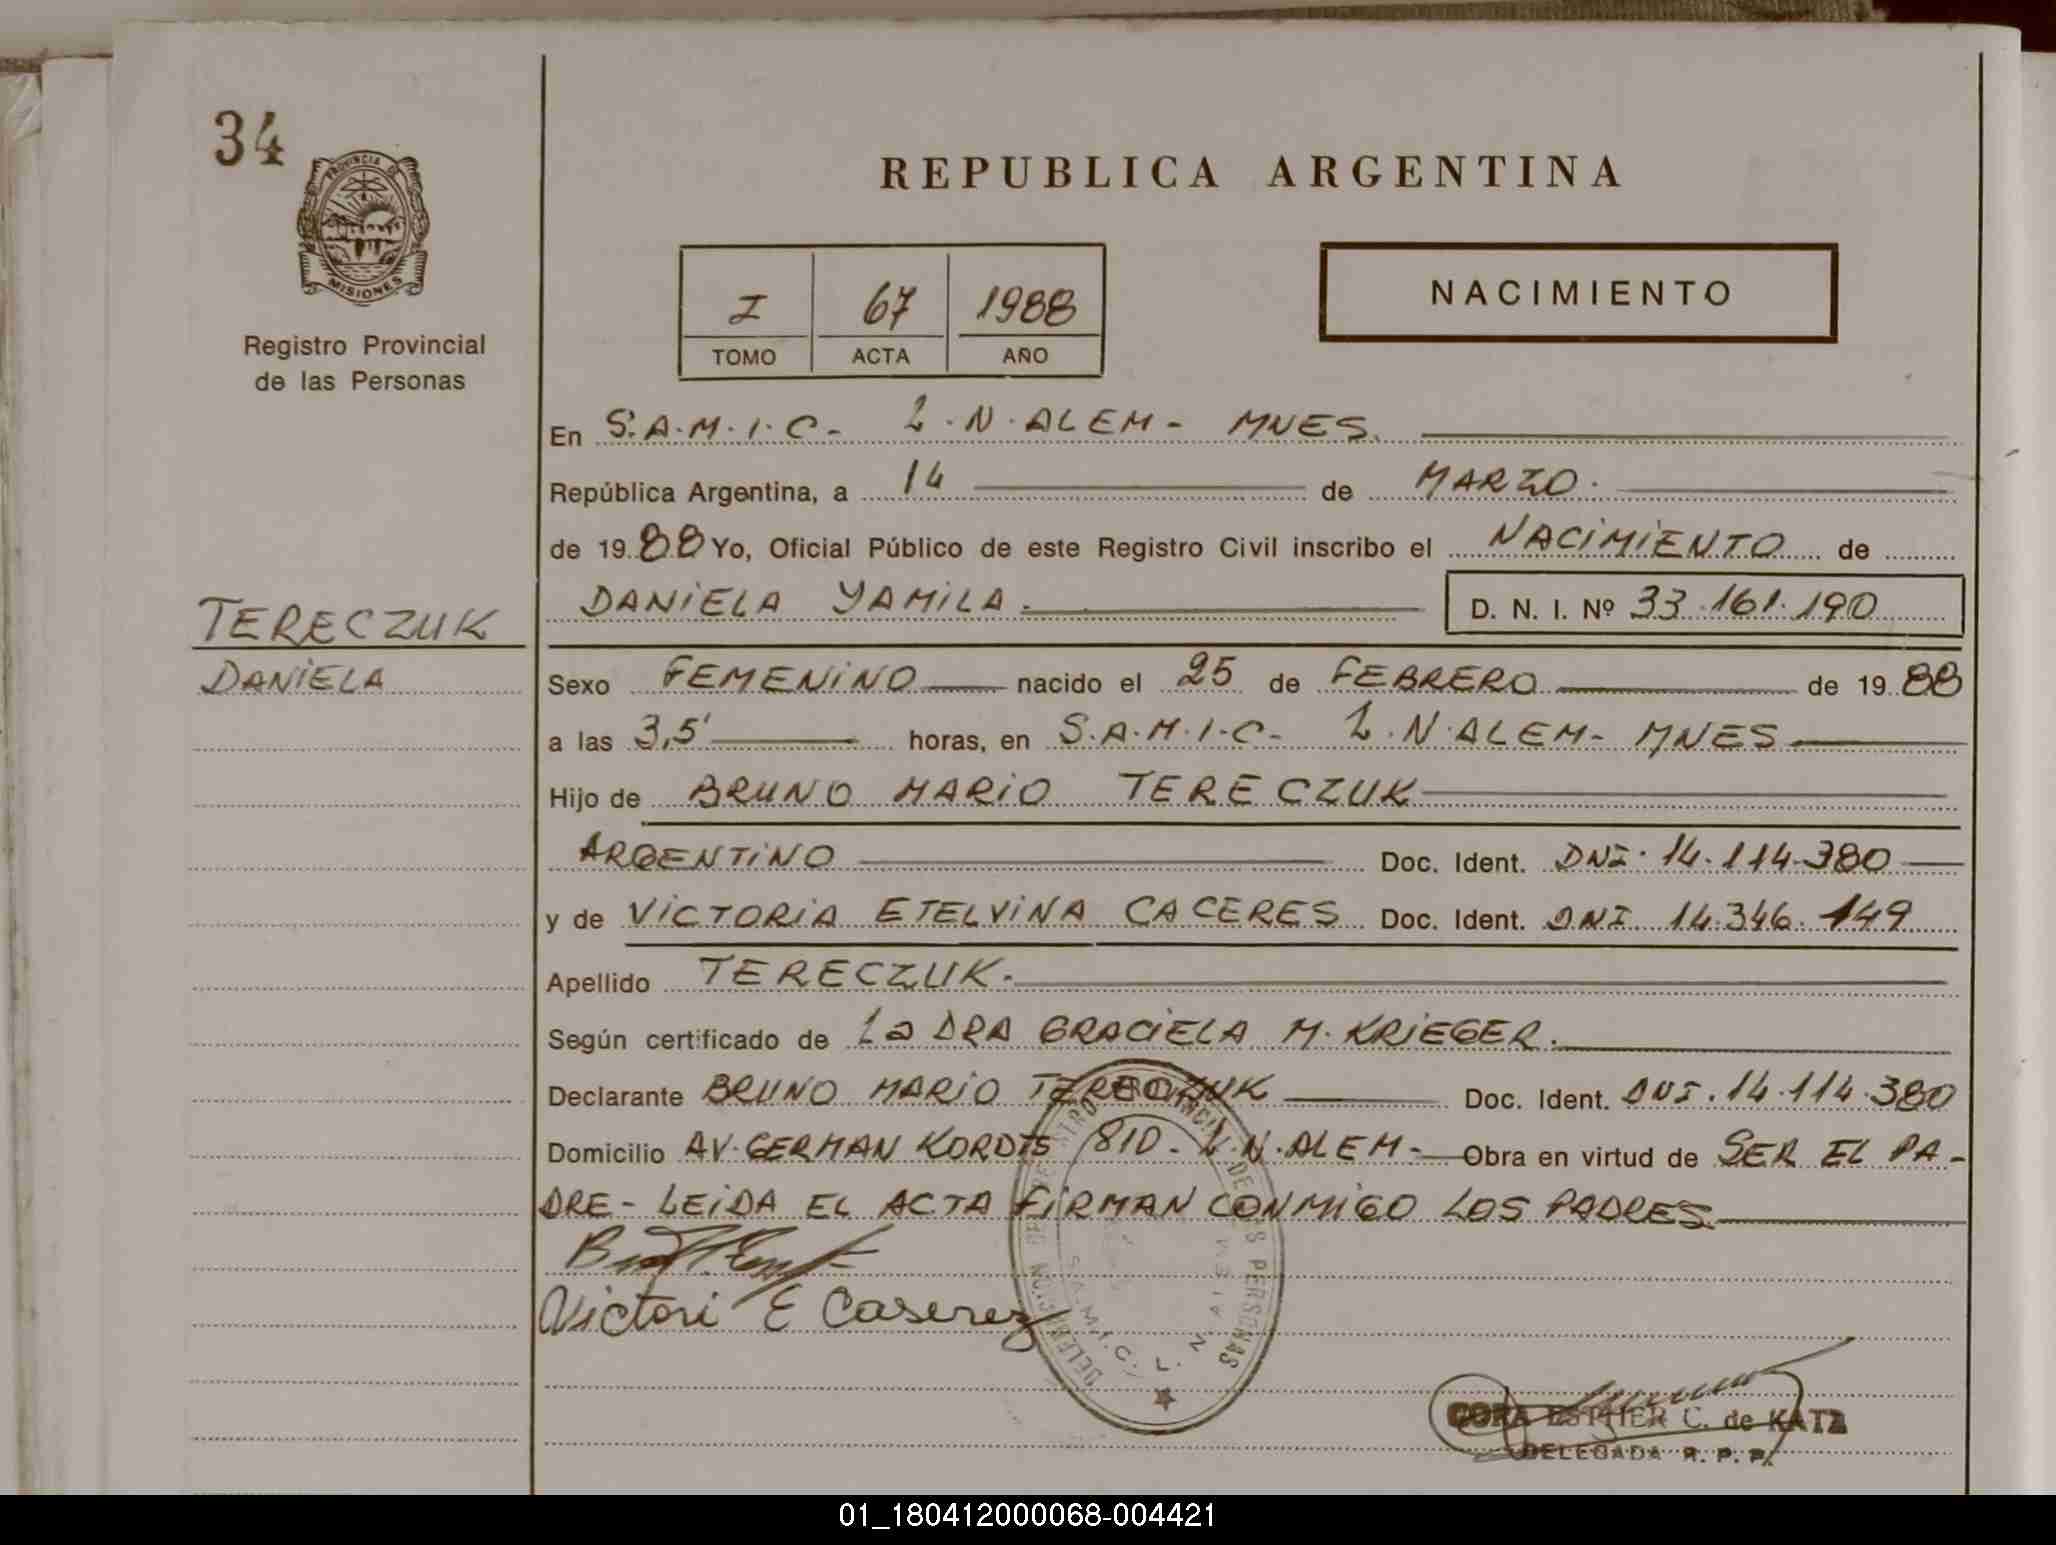 34
PROVINCIA DE
MISIONES
Registro Provincial
de las Personas
REPUBLICA ARGENTINA
I 67 1988
TOMO ACTA AÑO
NACIMIENTO
En S.A.M.I.C- L.N.ALEM- MNES.
República Argentina, a 14 de MARZO.
de 1988 Yo, Oficial Público de este Registro Civil inscribo el NACIMIENTO de
DANIELA YAMILA. D. N. I. Nº 33.161.190
TERECZUK
DANIELA
Sexo FEMENINO nacido el 25 de FEBRERO de 1988
a las 3,5' horas, en S.A.M.I.C- L.N.ALEM- MNES
Hijo de BRUNO MARIO TERECZUK
ARGENTINO Doc. Ident. DNI. 14.114.380
y de VICTORIA ETELVINA CACERES Doc. Ident. DNI 14.346.149
Apellido TERECZUK.
Según certificado de La DRA GRACIELA M. KRIEGER.
Declarante BRUNO MARIO TERECZUK Doc. Ident. DNI. 14.114.380
Domicilio AV. GERMAN KORDTS 810- L.N.ALEM- Obra en virtud de SER EL PA-
DRE- LEIDA EL ACTA FIRMAN CONMIGO LOS PADRES.
Victori E Caserez
DE LAS PERSONAS
S.A.M.I.C. L. N. ALEM
CORA ESTHER C. de KATZ
DELEGADA R. P. P.
01_180412000068-004421